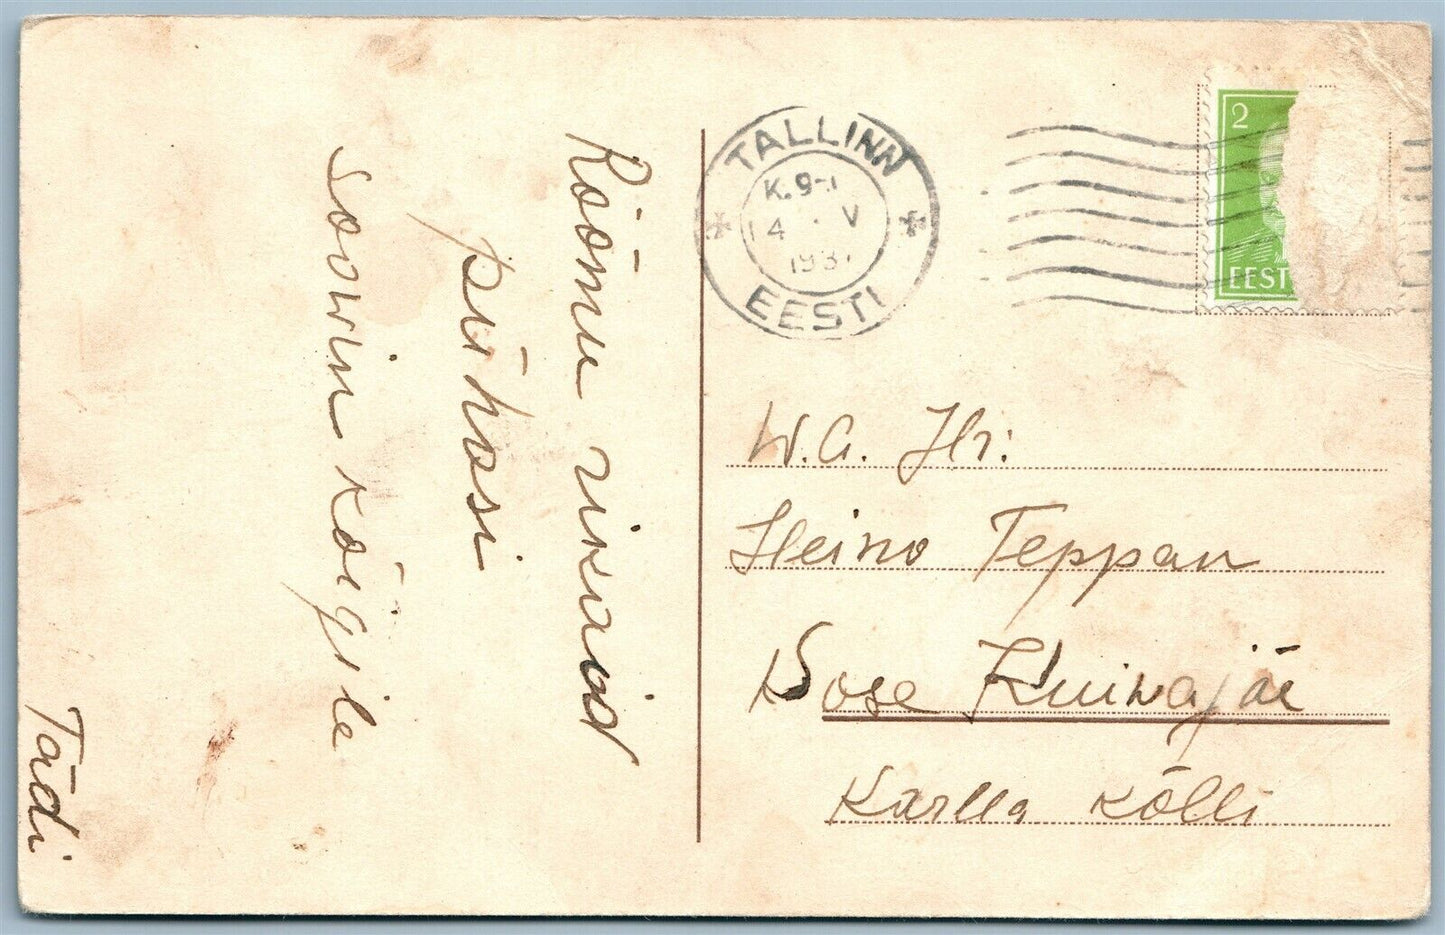 Rõõmu rikkaid
pühasi
soovin kõigile
Tädi
TALLINN
K. 9-1
14 · V
193
EESTI
2
EESTI
W.A. Hr:
Heino Teppan
Kose Kuivajõe
Karlla Kõlli